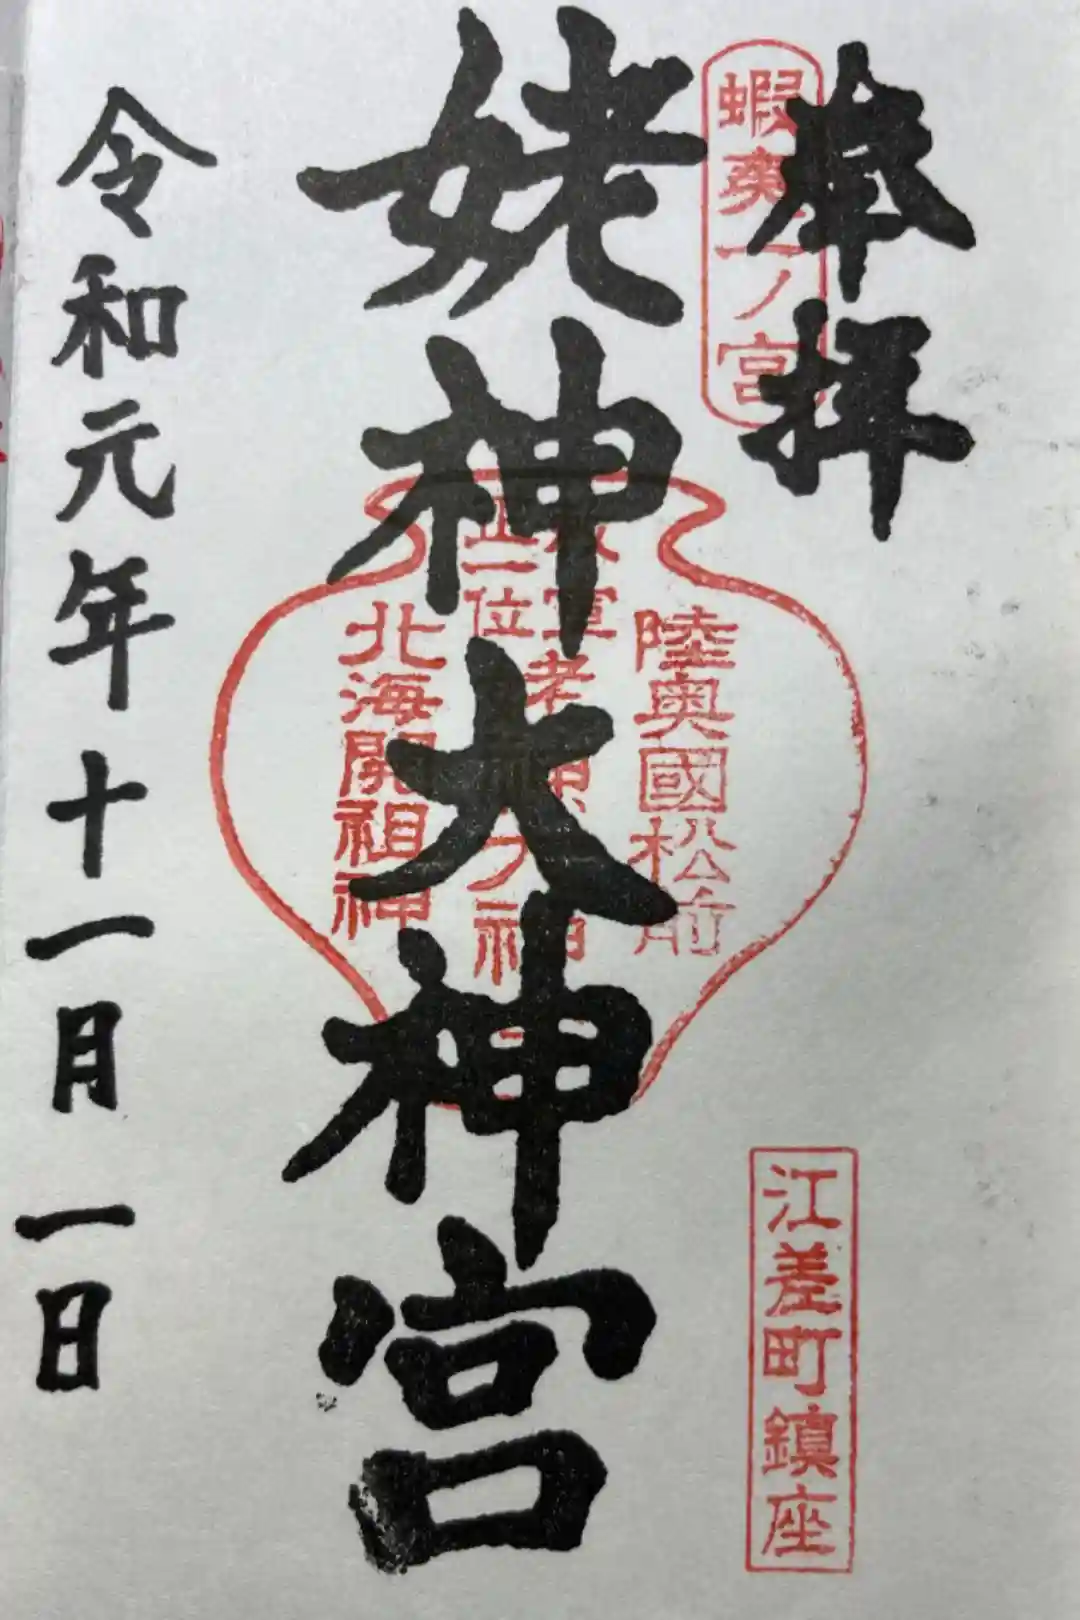 奉拝
蝦夷一ノ宮
姥神大神宮
陸奥國松前
正一位
北海開祖神
江差町鎮座
令和元年十一月一日